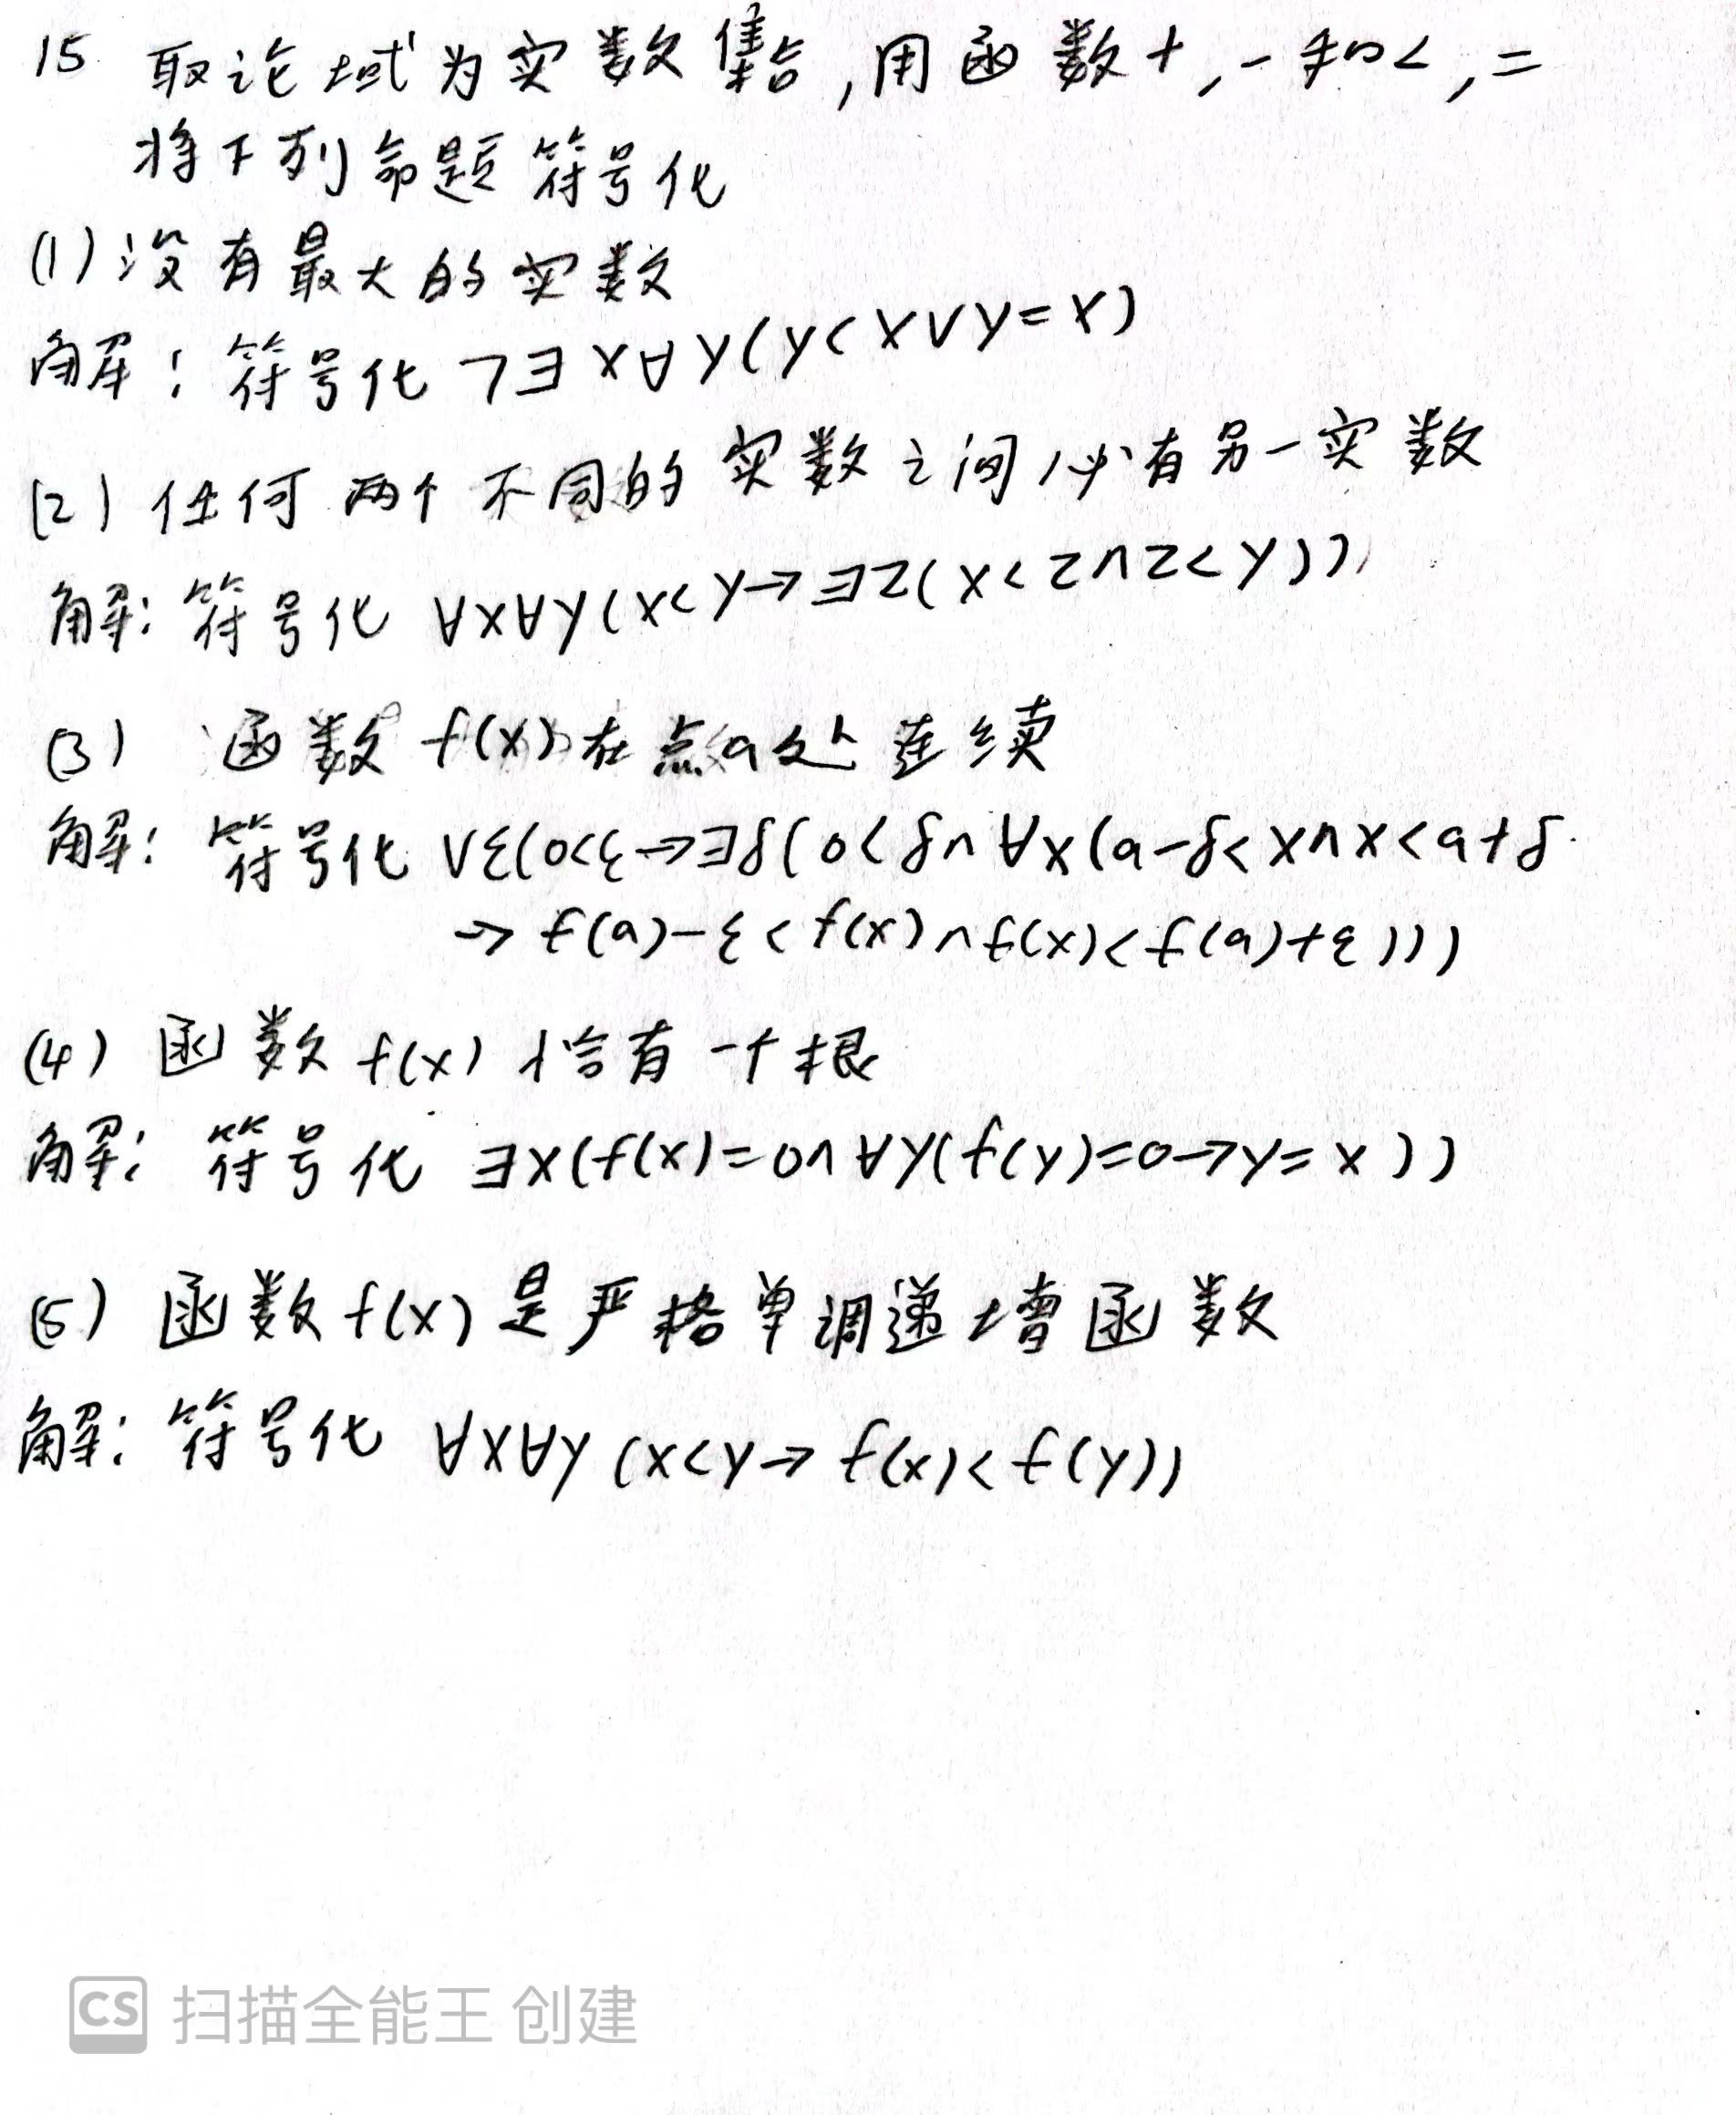 15 取论域为实数集合,用函数+,-和<,=
将下列命题符号化
(1)没有最大的实数
解:符号化 ¬∃x∀y(y<x∨y=x)
(2)任何两个不同的实数之间必有另一实数
解:符号化 ∀x∀y(x<y→∃z(x<z∧z<y))
(3) 函数f(x)在点a处连续
解:符号化 ∀ε(0<ε→∃δ(0<δ∧∀x(a-δ<x∧x<a+δ
→f(a)-ε<f(x)∧f(x)<f(a)+ε)))
(4) 函数f(x)恰有一个根
解:符号化 ∃x(f(x)=0∧∀y(f(y)=0→y=x))
(5) 函数f(x)是严格单调递增函数
解:符号化 ∀x∀y(x<y→f(x)<f(y))
CS 扫描全能王 创建